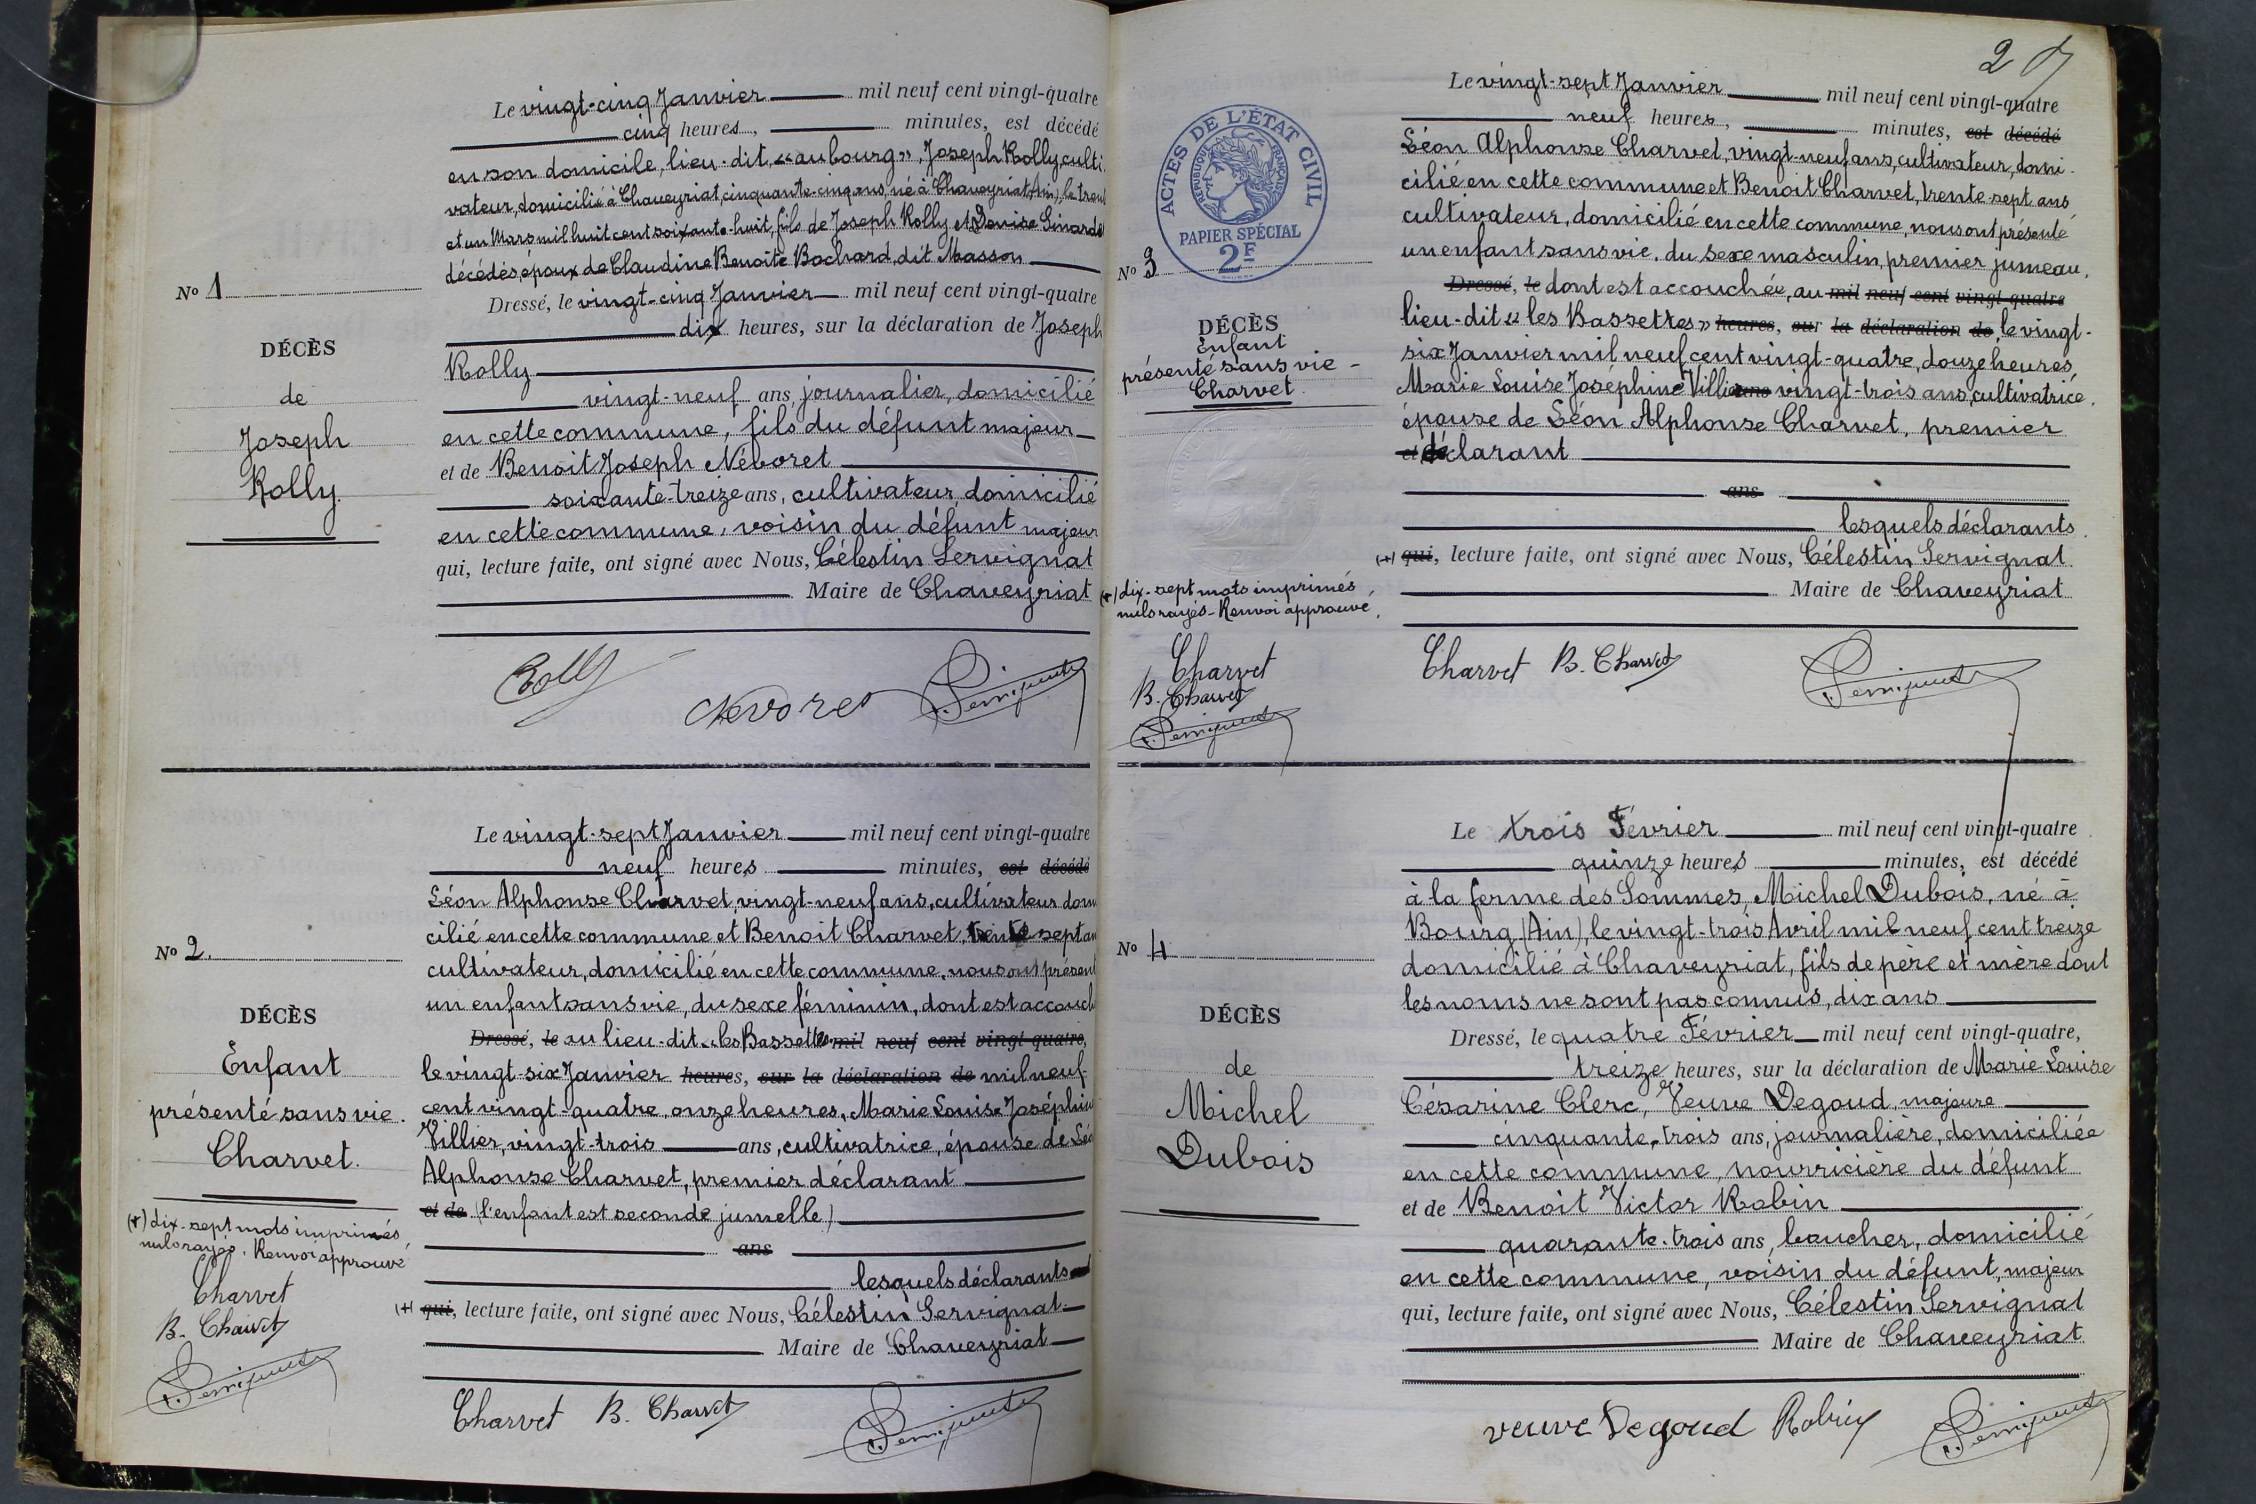 Le vingt-cinq Janvier mil neuf cent vingt-quatre
cinq heures, minutes, est décédé
en son domicile, lieu-dit, «au bourg», Joseph Rolly, culti-
vateur, domicilié à Chaveyriat, cinquante-cinq ans, né à Chaveyriat (Ain), le trente
et un Mars mil huit cent soixante-huit, fils de Joseph Rolly et Louise Girard
décédés, époux de Claudine Benoite Bochard, dit Masson
Nº 1
Dressé, le vingt-cinq Janvier mil neuf cent vingt-quatre
dix heures, sur la déclaration de Joseph
DÉCÈS
Rolly
de
vingt-neuf ans, journalier, domicilié
Joseph
en cette commune, fils du défunt majeur
Rolly.
et de Benoit Joseph Névoret
soixante-treize ans, cultivateur, domicilié
en cette commune, voisin du défunt majeur
qui, lecture faite, ont signé avec Nous, Célestin Servignat
Maire de Chaveyriat
Rolly
Nevoret
Servignat
Le vingt-sept Janvier mil neuf cent vingt-quatre
neuf heures minutes, est décédé
Léon Alphonse Charvet, vingt-neuf ans, cultivateur domi
cilié en cette commune et Benoit Charvet, trente sept an
cultivateur, domicilié en cette commune, nous ont présent
un enfant sans vie, du sexe féminin, dont est accouch
Nº 2.
DÉCÈS
Enfant
présenté sans vie.
Charvet.
Dressé, le au lieu-dit «les Bassettes mil neuf cent vingt-quatre,
le vingt-six Janvier heures, sur la déclaration de mil neuf-
cent vingt-quatre, onze heures, Marie Louise Joséphine
Villier, vingt-trois ans, cultivatrice, épouse de Léo
Alphonse Charvet, premier déclarant
et de (l'enfant est seconde jumelle)
ans
lesquels déclarants
(+) qui, lecture faite, ont signé avec Nous, Célestin Servignat
Maire de Chaveyriat
(+) dix-sept mots imprimés
nuls rayés. Renvoi approuvé
Charvet
B. Charvet
Servignat
Charvet B. Charvet
Servignat
2
Le vingt-sept Janvier mil neuf cent vingt-quatre
neuf heures, minutes, est décédé
Léon Alphonse Charvet, vingt-neuf ans, cultivateur, domi-
cilié en cette commune et Benoit Charvet, trente-sept ans
cultivateur, domicilié en cette commune, nous ont présenté
un enfant sans vie, du sexe masculin, premier jumeau,
ACTES DE L'ÉTAT CIVIL
RÉPUBLIQUE FRANÇAISE
PAPIER SPÉCIAL
2F
Nº 3
DÉCÈS
Enfant
présenté sans vie -
Charvet
Dressé, le dont est accouchée, au mil neuf cent vingt-quatre
lieu-dit «les Bassettes» heures, sur la déclaration de, le vingt-
six Janvier mil neuf cent vingt-quatre, douze heures,
Marie Louise Joséphine Villier ans vingt-trois ans, cultivatrice,
épouse de Léon Alphonse Charvet, premier
et déclarant
ans
lesquels déclarants
(+) qui, lecture faite, ont signé avec Nous, Célestin Servignat
Maire de Chaveyriat
(+) dix-sept mots imprimés
nuls rayés - Renvoi approuvé,
Charvet
B. Charvet
Servignat
Charvet B. Charvet
Servignat
Le trois Février mil neuf cent vingt-quatre
quinze heures minutes, est décédé
à la ferme des Sommes, Michel Dubois, né à
Bourg (Ain), le vingt-trois Avril mil neuf cent treize
domicilié à Chaveyriat, fils de père et mère dont
les noms ne sont pas connus, dix ans
Nº 4
DÉCÈS
de
Michel
Dubois
Dressé, le quatre Février mil neuf cent vingt-quatre,
treize heures, sur la déclaration de Marie Louise
Césarine Clerc, Veuve Degoud, majeure
cinquante-trois ans, journalière, domiciliée
en cette commune, nourricière du défunt
et de Benoit Victor Robin
quarante-trois ans, boucher, domicilié
en cette commune, voisin du défunt, majeur
qui, lecture faite, ont signé avec Nous, Célestin Servignat
Maire de Chaveyriat
veuve Degoud Robin
Servignat